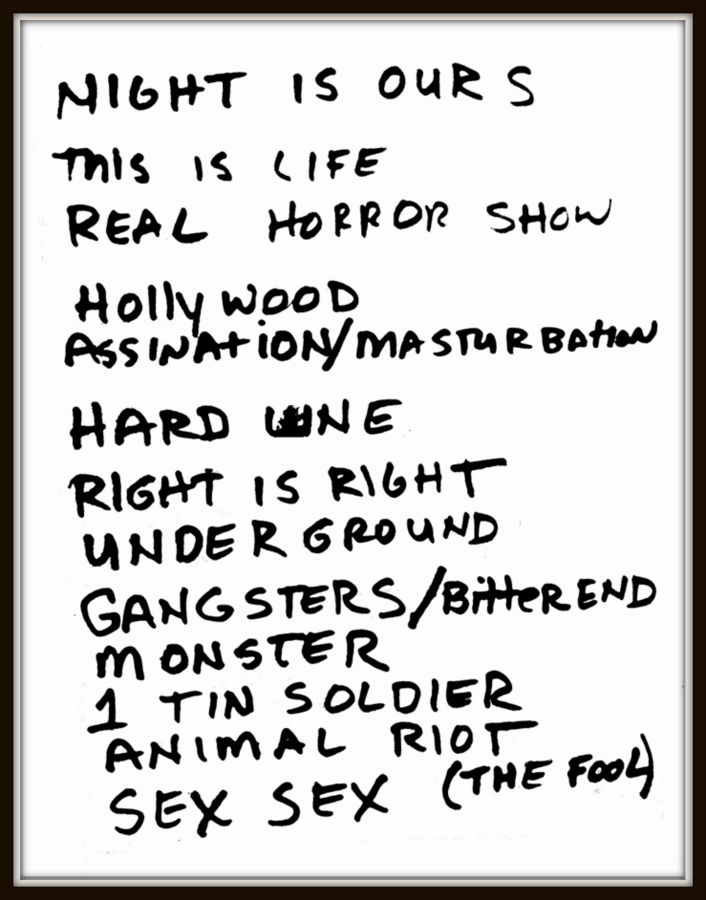 NIGHT IS OURS
THIS IS LIFE
REAL HORROR SHOW
HollyWOOD
ASSINATION/MASTURBATION
HARD LINE
RIGHT IS RIGHT
UNDERGROUND
GANGSTERS/BitterEND
MONSTER
1 TIN SOLDIER
ANIMAL RIOT
SEX SEX (THE FOOL)